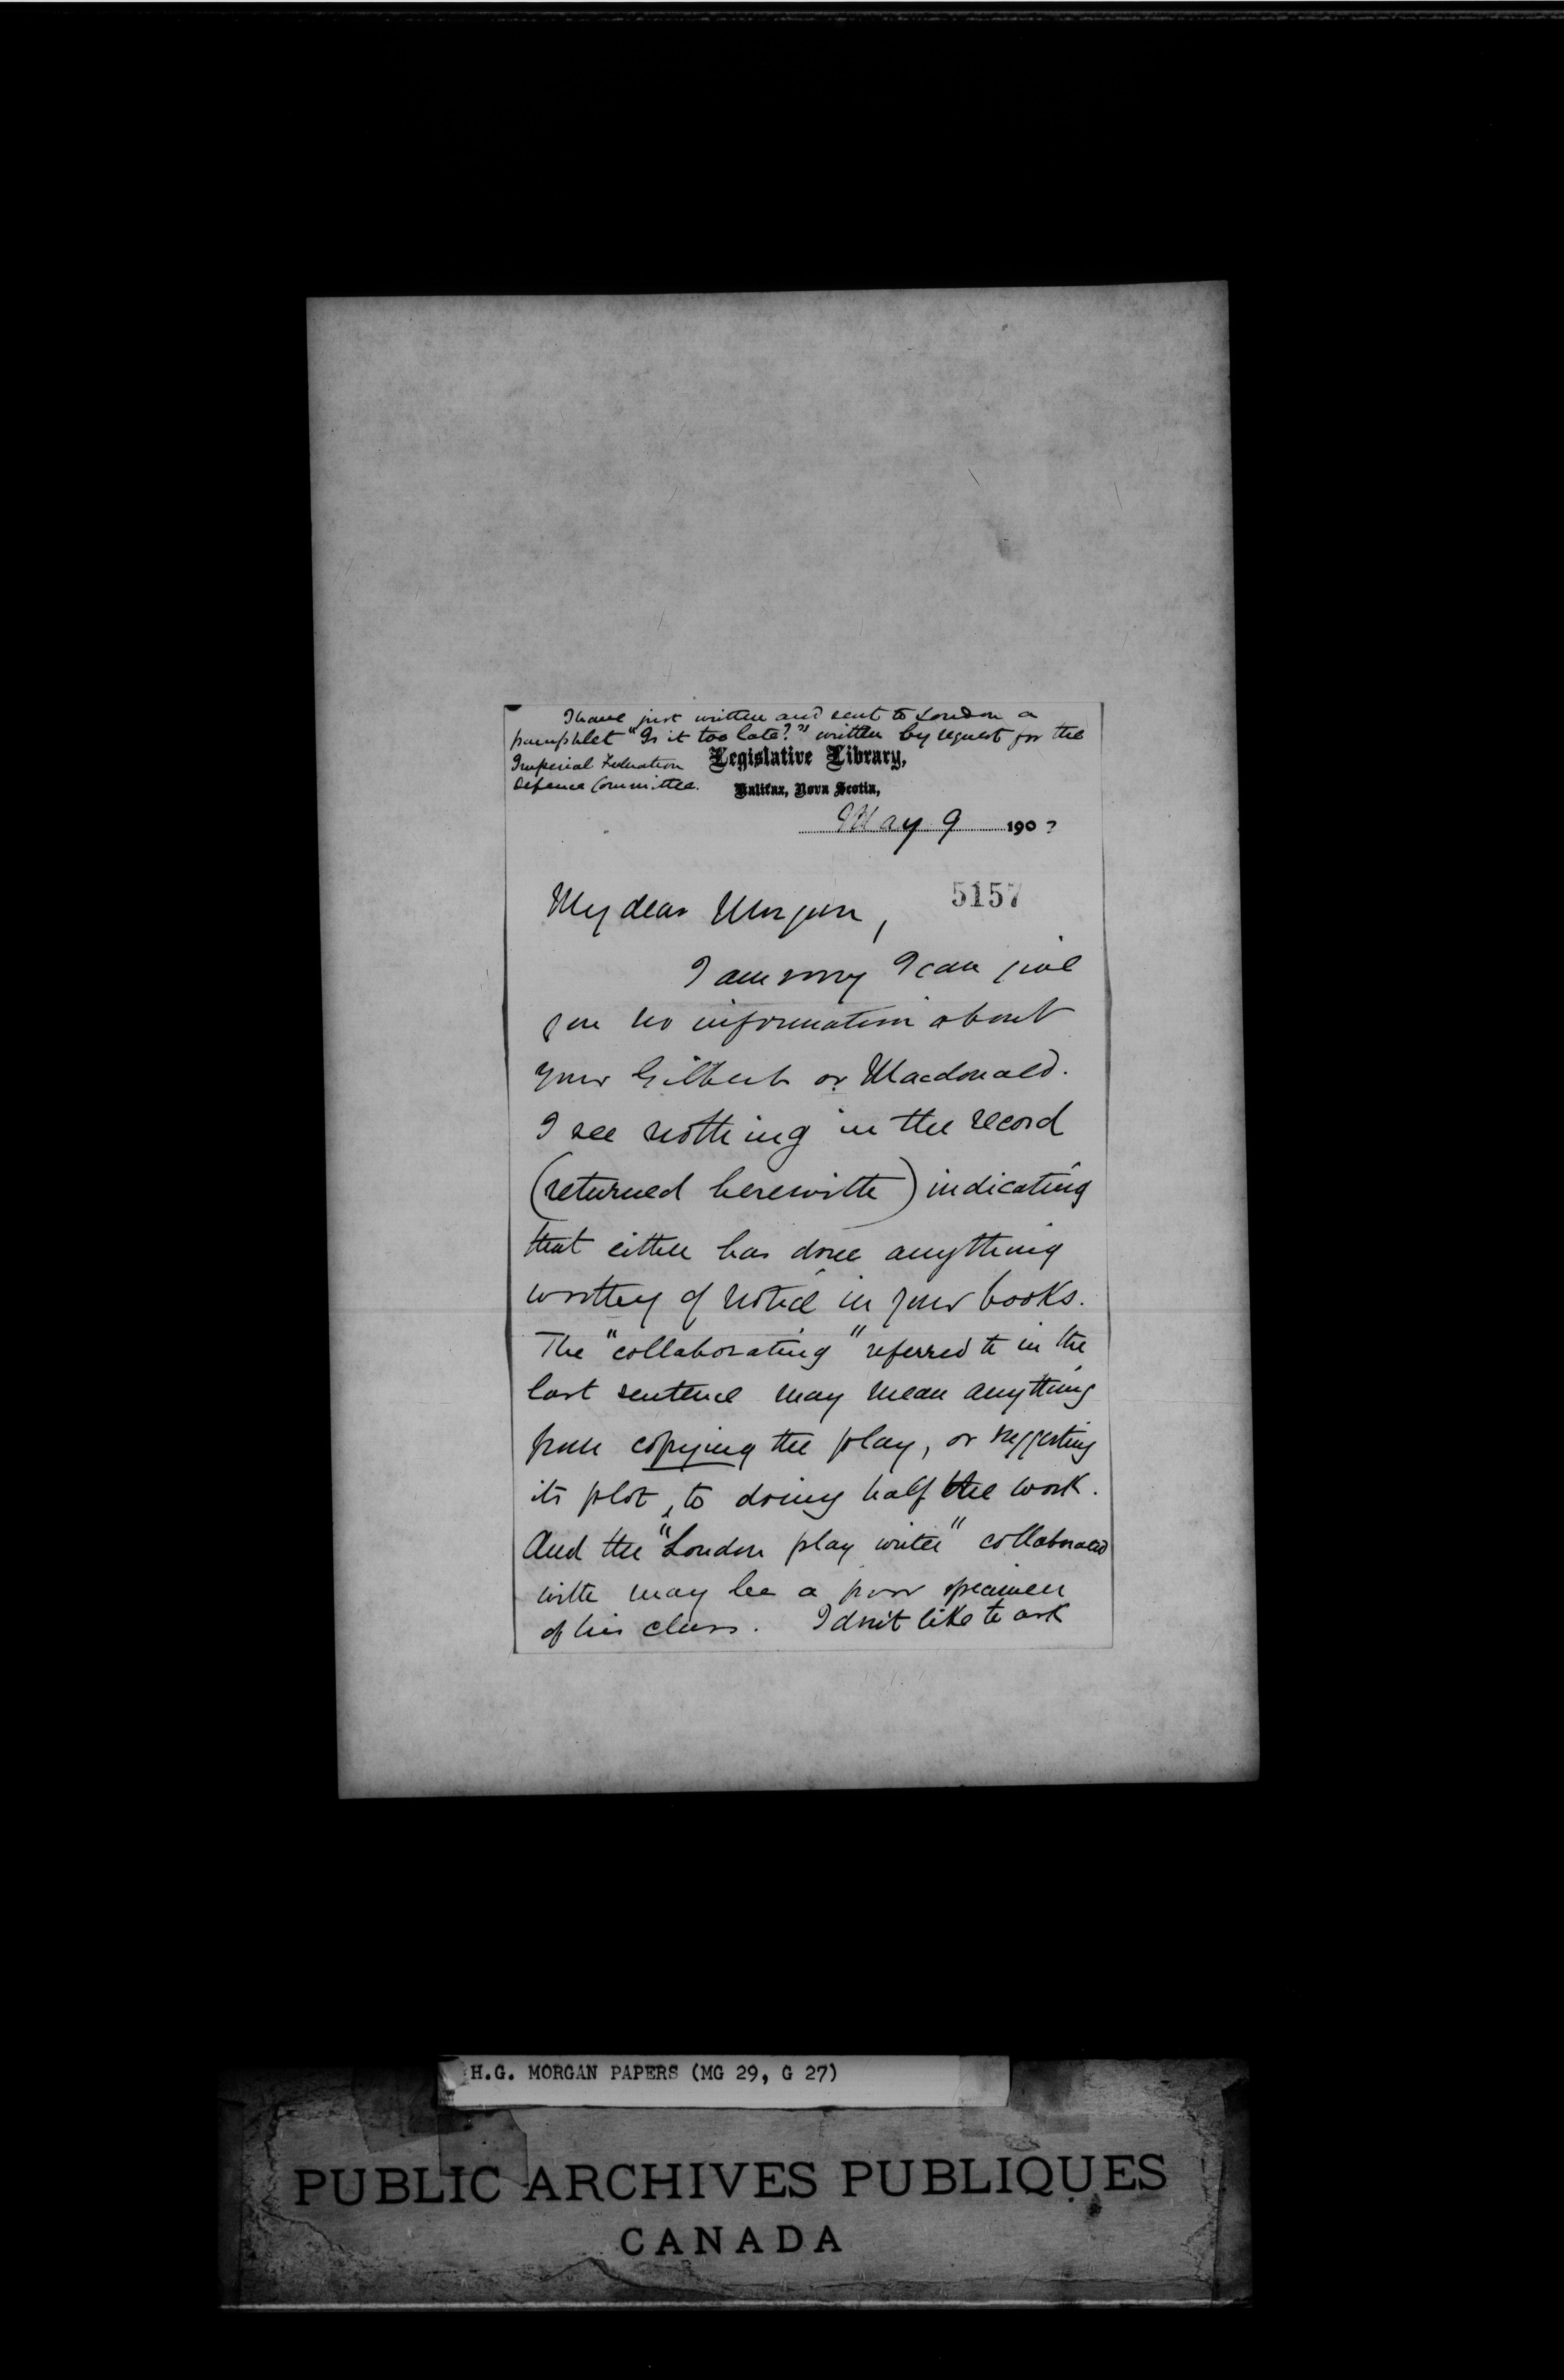 I have just written and sent to London a
pamphlet "Is it too late?" written by request for the
Imperial Federation
Defence Committee.
Legislative Library,
Halifax, Nova Scotia,
May 9 190?
5157
My dear Morgan,
I am sorry I can give
you no information about
your Gilbert or Macdonald.
I see nothing in the record
(returned herewith) indicating
that either has done anything
worthy of notice in your books.
The "collaborating" referred to in the
last sentence may mean anything
from copying the play, or suggesting
its plot, to doing half the work.
And the "London play writer" collaborated
with may be a poor specimen
of his class. I don't like to ask
H.G. MORGAN PAPERS (MG 29, G 27)
PUBLIC ARCHIVES PUBLIQUES
CANADA